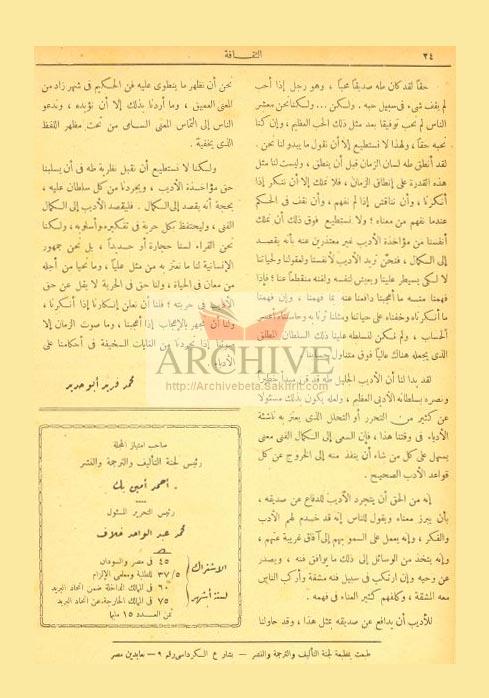 ٢٤
الثقافة
حقاً لقد كان طه صديقاً محباً ، وهو رجل إذا أحب
لم يقف شيء فى سبيل حبه . ولكن ... ولكننا نحن معشر
الناس لم نحب توفيقا بعد مثل ذلك الحب العظيم ، وإن كنا
نحبه حقاً ، ولهذا لا نستطيع إلا أن نقول ما يبدو لنا نحن .
لقد أنطق طه لسان الزمان قبل أن ينطق ، وليست لنا مثل
هذه القدرة على إنطاق الزمان ، فلا نملك إلا أن ننكر إذا
أنكرنا ، وأن نناقش إذا لم نفهم ، وأن نقف فى الحكم
عندما نفهم من معناه ؛ ولا نستطيع فوق ذلك أن نملك
أنفسنا من مؤاخذة الأديب غير معتذرين عنه بأنه يقصد
إلى الكمال ، فنحن نريد الأديب لأنفسنا ولعقولنا ولحياتنا
لا لكى يسيطر علينا ويعيش لنفسه ولفنه منقطعاً عنا ؛ فإذا
فهمنا منه ما أعجبنا دافعنا عنه بما فهمنا ، وإن فهمنا
ما أنكرناه وخفناه على حياتنا ومثلنا ثرنا به وحاسبناه أعسر
الحساب ، ولم نمكن لنسلطه علينا ذلك السلطان المطلق
الذى يجعله هناك عالياً فوق متناول
لقد بدا لنا أن الأديب الجليل طه قد قرر مبدأ خطيراً
ونصره بسلطانه الأدبى العظيم ، ولعله يكون بذلك مسئولا
عن كثير من التحرر أو التحلل الذى يعتز به ناشئة
الأدباء فى وقتنا هذا ، فإن السعى إلى الكمال الفنى معنى
يسهل على كل من شاء أن ينفذ منه إلى الخروج عن كل
قواعد الأدب الصحيح .
إنه من الحق أن يتجرد الأديب للدفاع عن صديقه ،
بأن يبرز معناه ويقول للناس إنه قد خدم لهم الأدب
والفكر ، وإنه يعمل على السمو بهم إلى آفاق غريبة عنهم ،
وإنه يتخذ من الوسائل إلى ذلك ما يوافق فنه ، ويصدر
عن وحيه وإن ارتكب فى سبيل فنه مشقة وأركب الناس
معه المشقة ، وكلفهم كثير العناء فى فهمه .
للأديب أن يدافع عن صديقه بمثل هذا ، وقد حاولنا
نحن أن نظهر ما ينطوى عليه فن الحكيم فى شهرزاد من
المعنى العميق ، وما أردنا بذلك إلا أن نؤيده ، وندعو
الناس إلى التماس المعنى السامى من تحت مظهر اللفظ
الذى يخفيه .
ولكننا لا نستطيع أن نقبل نظرية طه فى أن يسلبنا
حق مؤاخذة الأديب ، ويجردنا من كل سلطان عليه ،
بحجة أنه يقصد إلى الكمال . فليقصد الأديب إلى الكمال
الفنى ، وليحتفظ بكل حرية فى تفكيره وأسلوبه ، ولكننا
نحن القراء لسنا حجارة أو حديداً ، بل نحن جمهور
الإنسانية لنا ما نعتز به من مثل عليا ، وما نحيا من أجله
من معان فى الحياة ، ولنا حق فى الحرية لا يقل عن حق
الأديب فى حريته ؛ فلنا أن نعلن إنكارنا إذا أنكرنا ،
ولنا أن نجهر بالإعجاب إذا أعجبنا ، وما صوت الزمان إلا
صوتنا إذا تجردنا من الغايات السخيفة فى أحكامنا على
الأدباء
محمد فريد أبو حديد
صاحب امتياز المجلة
رئيس لجنة التأليف والترجمة والنشر
أحمد أمين بك
رئيس التحرير المسئول
محمد عبد الواحد خلاف
الاشتراك لسنة أشهر
٤٥ فى مصر والسودان
٣٧/٥ للطلبة ومعلمى الإلزام
٦٠ فى الممالك الداخلة ضمن اتحاد البريد
٧٥ فى الممالك الخارجة عن اتحاد البريد
ثمن العدد ١٥ مليما
طبعت بمطبعة لجنة التأليف والترجمة والنشر – بشارع الكرداسى رقم ٩ – عابدين مصر
ARCHIVE
http://Archivebeta.Sakhrit.com